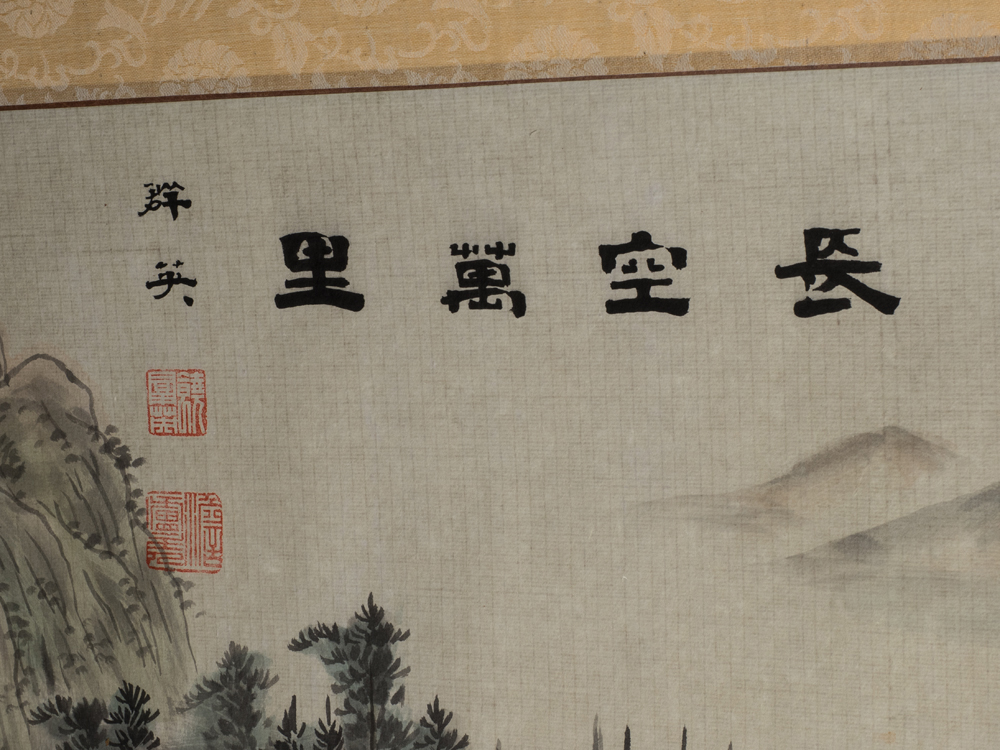 長空萬里
群英